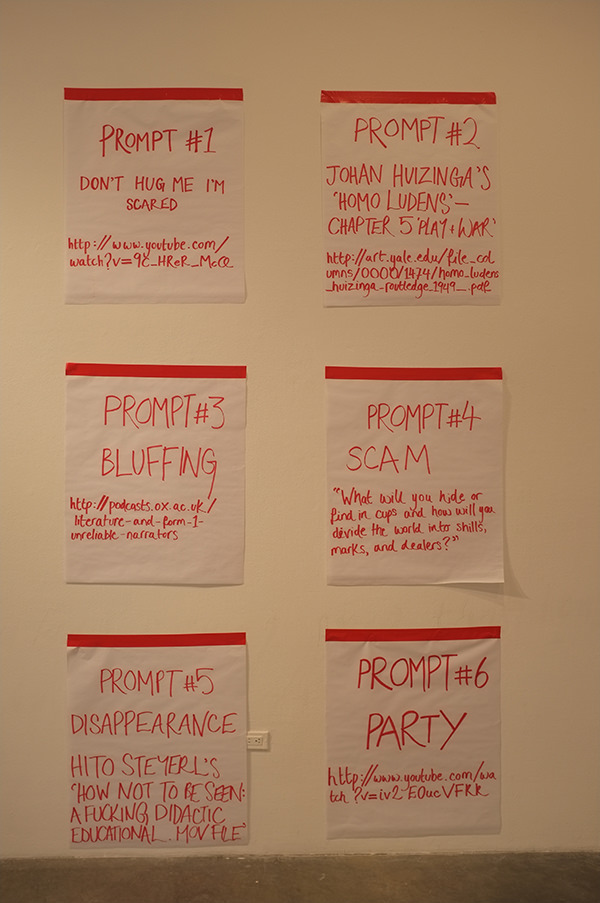 PROMPT #1
DON'T HUG ME I'M
SCARED
http://www.youtube.com/
watch?v=9C_HReR_McQ
PROMPT #2
JOHAN HUIZINGA'S
'HOMO LUDENS' –
CHAPTER 5 'PLAY + WAR'
http://art.yale.edu/file_col
umns/0000/1474/homo_ludens
_huizinga_routledge_1949_.pdf
PROMPT #3
BLUFFING
http://podcasts.ox.ac.uk/
literature-and-form-1-
unreliable-narrators
PROMPT #4
SCAM
"What will you hide or
find in cups and how will you
divide the world into shills,
marks, and dealers?"
PROMPT #5
DISAPPEARANCE
HITO STEYERL'S
'HOW NOT TO BE SEEN:
A FUCKING DIDACTIC
EDUCATIONAL .MOV FILE'
PROMPT #6
PARTY
http://www.youtube.com/wa